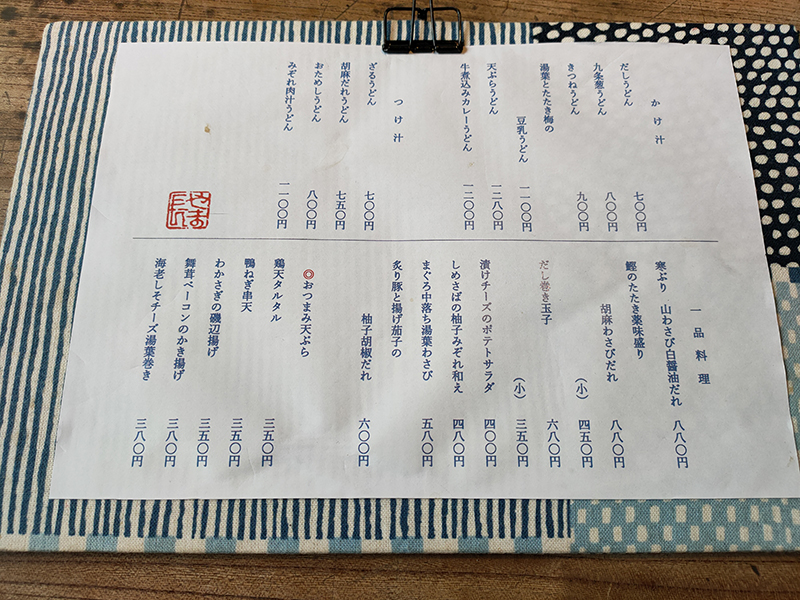 かけ汁
だしうどん 七〇〇円
九条葱うどん 八〇〇円
きつねうどん 九〇〇円
湯葉とたたき梅の
豆乳うどん 一一〇〇円
天ぷらうどん 一二八〇円
牛煮込みカレーうどん 一二〇〇円
つけ汁
ざるうどん 七〇〇円
胡麻だれうどん 七五〇円
おためしうどん 八〇〇円
みぞれ肉汁うどん 一一〇〇円
一品料理
寒ぶり 山わさび白醤油だれ 八八〇円
鰹のたたき薬味盛り
胡麻わさびだれ 八八〇円
(小) 四五〇円
だし巻き玉子 六八〇円
(小) 三五〇円
漬けチーズのポテトサラダ 四〇〇円
しめさばの柚子みぞれ和え 四八〇円
まぐろ中落ち湯葉わさび 五八〇円
炙り豚と揚げ茄子の
柚子胡椒だれ 六〇〇円
◎おつまみ天ぷら
鶏天タルタル 三五〇円
鴨ねぎ串天 三五〇円
わかさぎの磯辺揚げ 三五〇円
舞茸ベーコンのかき揚げ 三八〇円
海老しそチーズ湯葉巻き 三八〇円